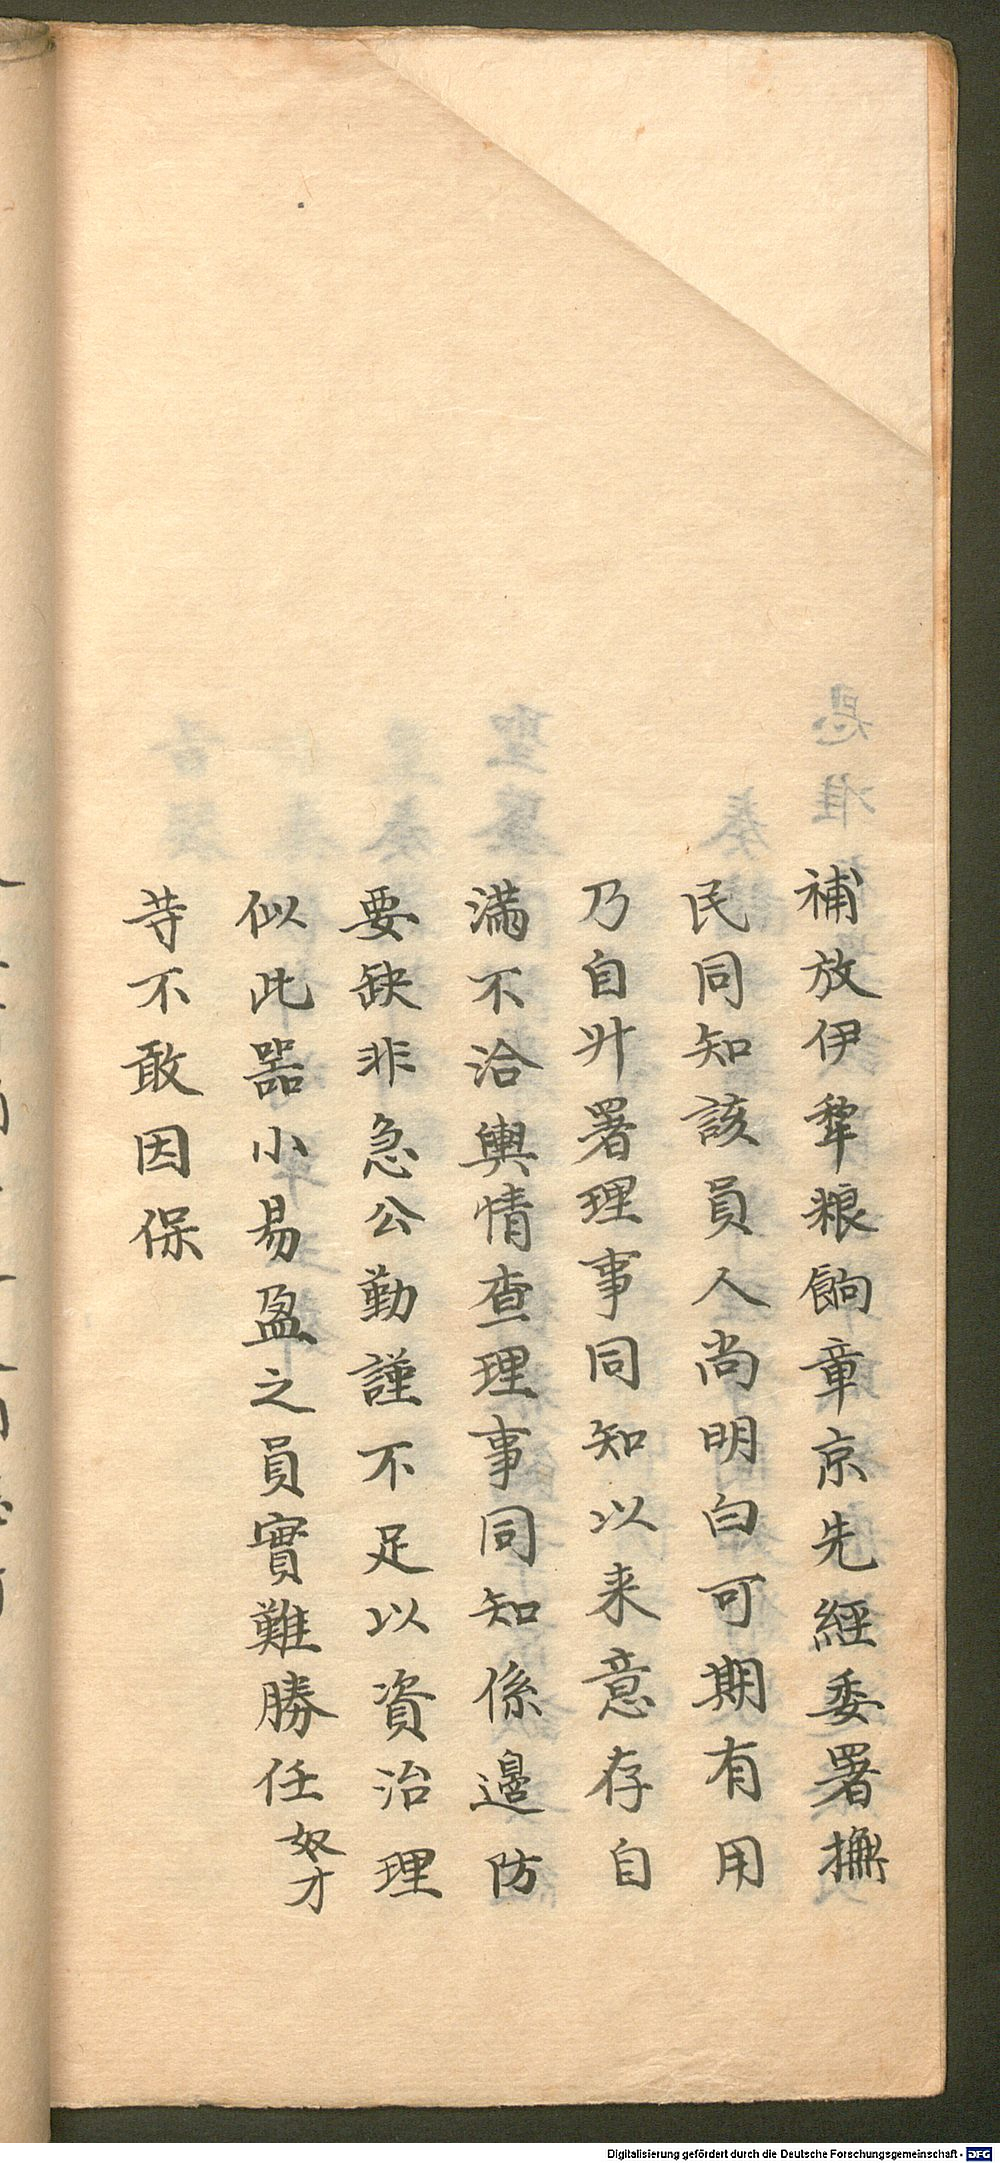 補放伊犂粮餉章京先經委署撫
民同知該員人尚明白可期有用
乃自升署理事同知以来意存自
滿不洽輿情查理事同知係邊防
要缺非急公勤謹不足以資治理
似此器小易盈之員實難勝任奴才
苛不敢因保
Digitalisierung gefördert durch die Deutsche Forschungsgemeinschaft - DFG